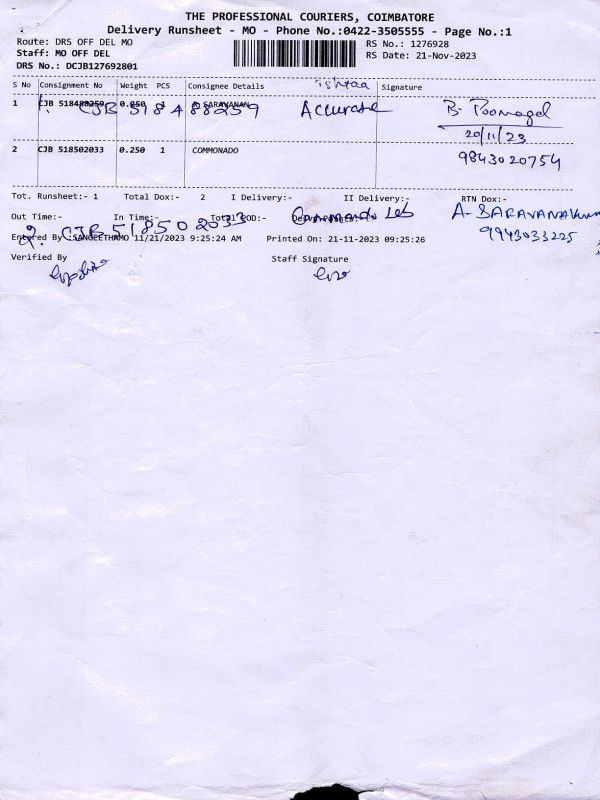 THE PROFESSIONAL COURIERS, COIMBATORE
Delivery Runsheet - MO - Phone No.:0422-3505555 - Page No.:1
Route: DRS OFF DEL MO
RS No.: 1276928
Staff: MO OFF DEL
RS Date: 21-Nov-2023
DRS No.: DCJB127692801
S No Consignment No Weight PCS Consignee Details Signature
1 CJB 518488259 0.050 SARAVANAN
1. CJB 518488259 Accurate B.
20/11/23
2 CJB 518502033 0.250 1 COMMONADO
9843020754
Tot. Runsheet:- 1 Total Dox:- 2 I Delivery:- II Delivery:- RTN Dox:-
Out Time:- In Time:- Total POD:-
2. CJB 518502033 A. SARAVANAKUMAR
9943033225
Entered By :SANGEETHAMO 11/21/2023 9:25:24 AM Printed On: 21-11-2023 09:25:26
Verified By Staff Signature